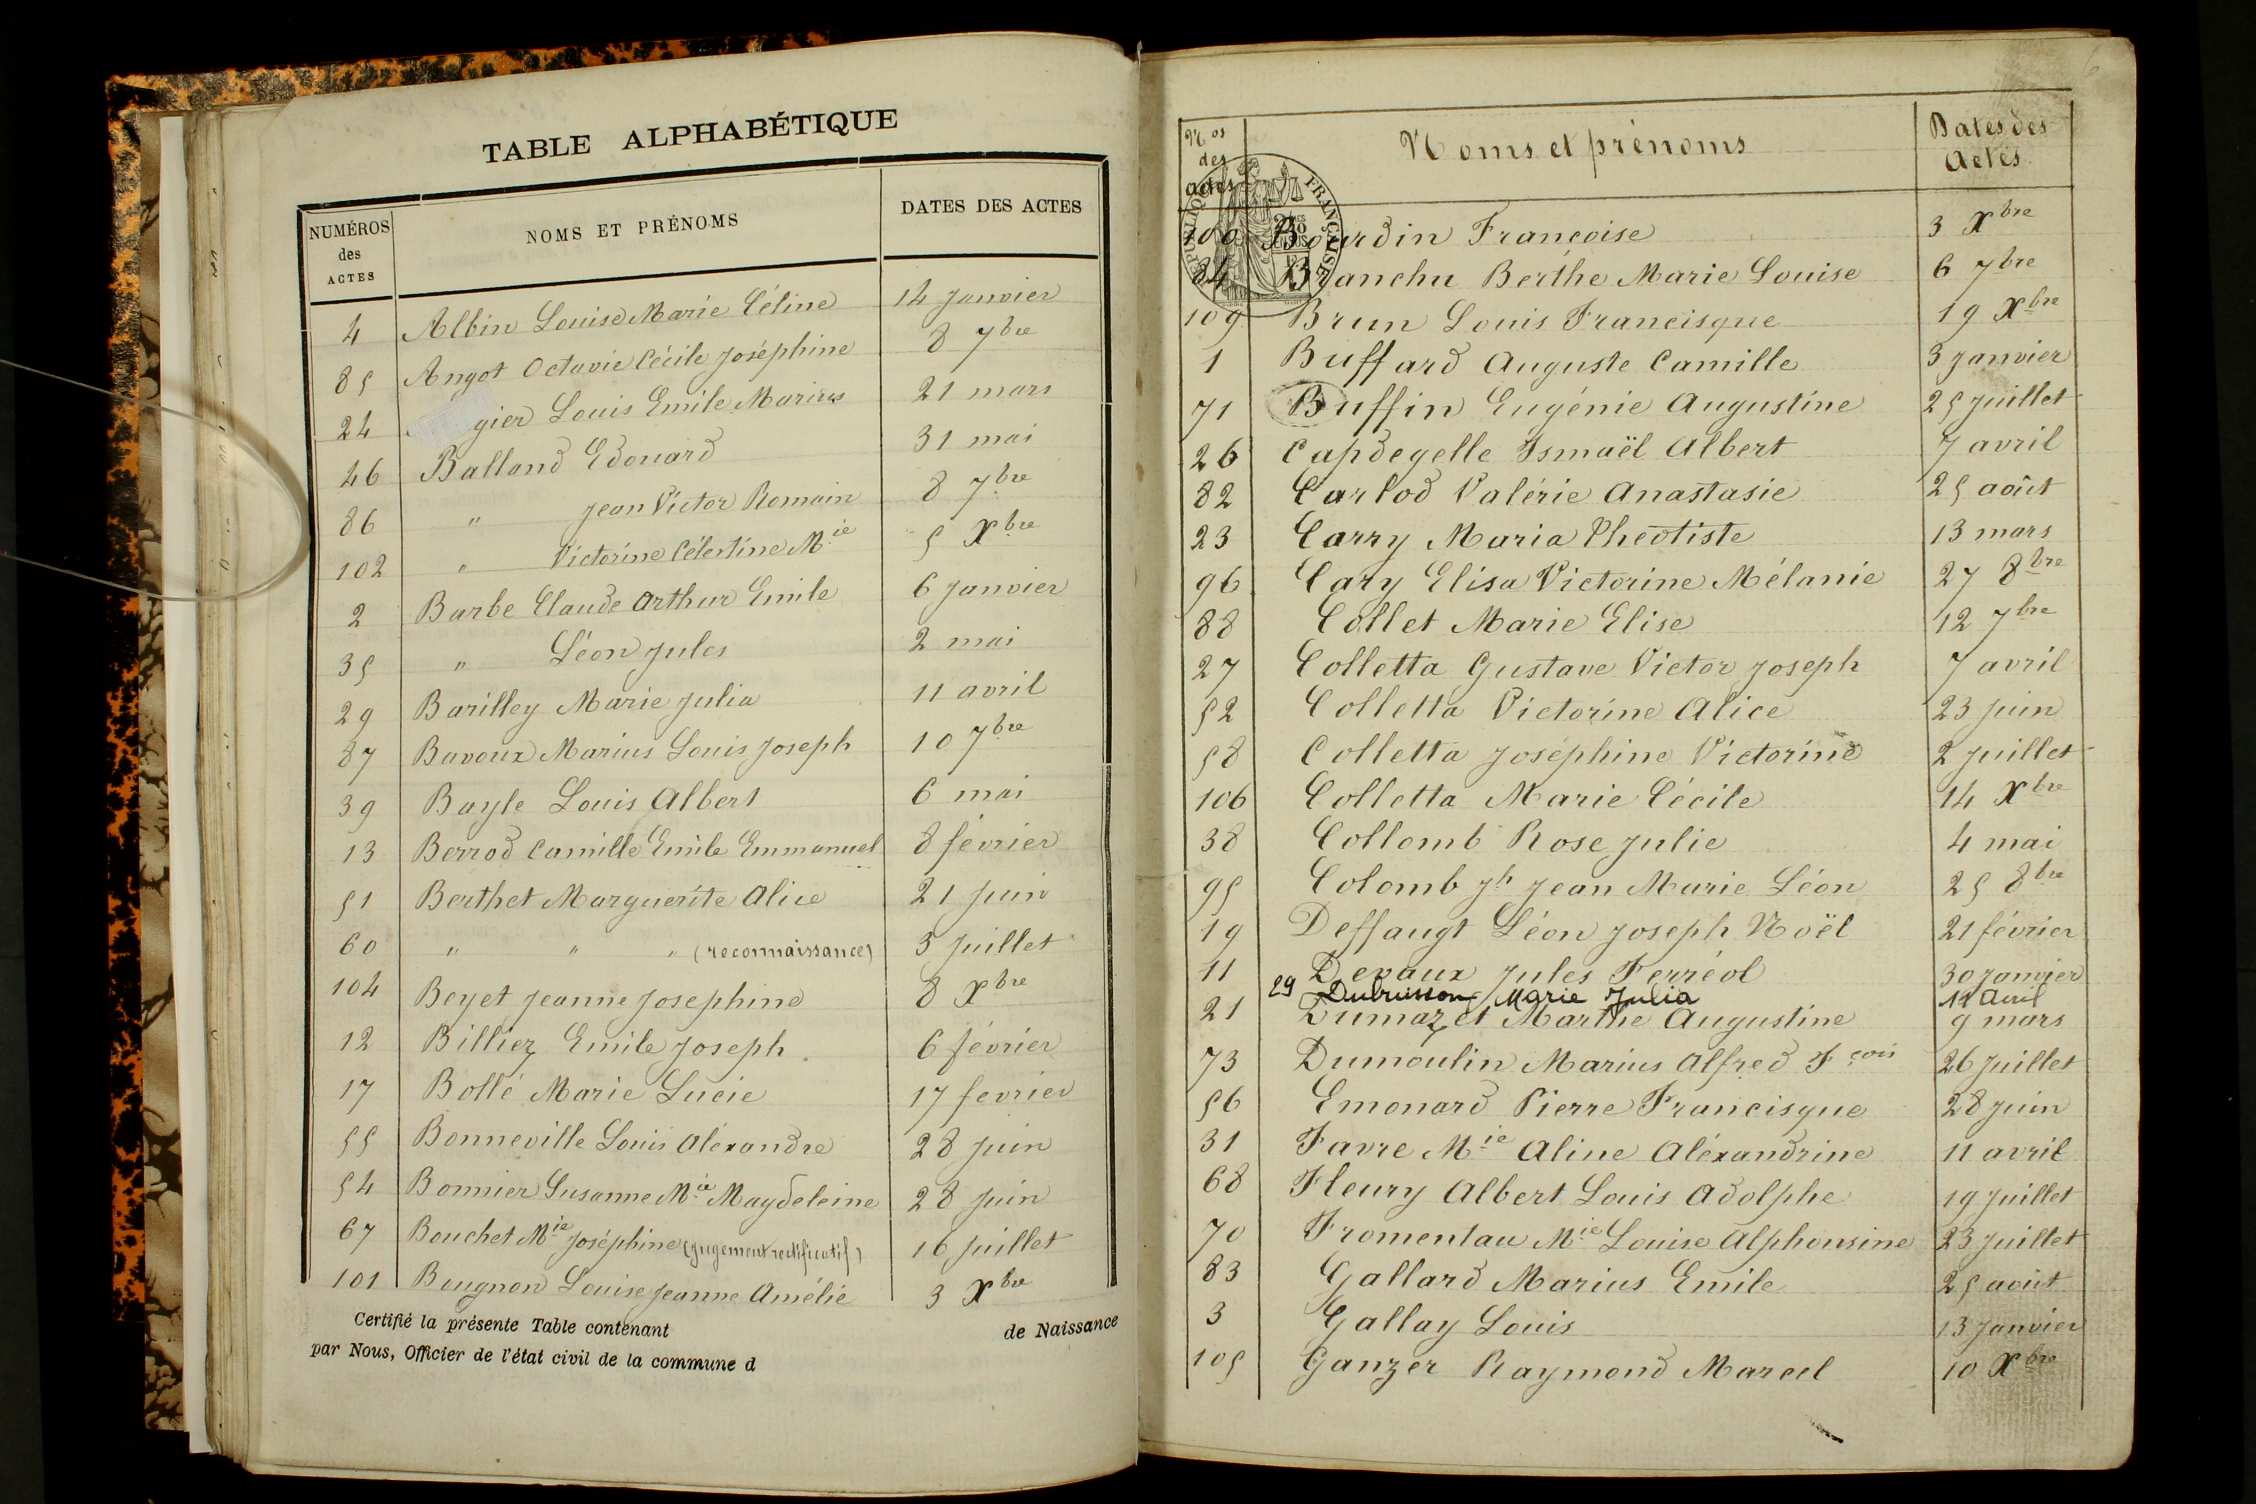 TABLE ALPHABÉTIQUE
NUMÉROS des ACTES NOMS ET PRÉNOMS DATES DES ACTES
4 Albin Louise Marie Céline 14 janvier
85 Angot Octavie Cécile Joséphine 8 7bre
24 gier Louis Emile Marius 21 mars
46 Balland Edouard 31 mai
86 " Jean Victor Romain 8 7bre
102 " Victorine Célestine Mie 5 Xbre
2 Barbe Claude Arthur Emile 6 janvier
35 " Léon Jules 2 mai
29 Barilley Marie Julia 11 avril
87 Bavoux Marius Louis Joseph 10 7bre
39 Bayle Louis Albert 6 mai
13 Berrod Camille Emile Emmanuel 8 février
51 Berthet Marguerite Alice 21 juin
60 " " " (reconnaissance) 3 juillet
104 Beyet Jeanne Josephine 8 Xbre
12 Billiez Emile Joseph 6 février
17 Bollé Marie Lucie 17 fevrier
55 Bonneville Louis Aléxandre 28 juin
54 Bonnier Susanne Mie Magdeleine 28 juin
67 Bouchet Mie Joséphine (jugement rectificatif) 16 juillet
101 Bougnon Louise Jeanne Amélie 3 Xbre
Certifié la présente Table contenant de Naissance
par Nous, Officier de l'état civil de la commune d
Nos des actes Noms et prénoms Dates des Actes
RÉPUBLIQUE FRANÇAISE
100 Bourdin Françoise 3 Xbre
84 Branchu Berthe Marie Louise 6 7bre
109 Brun Louis Francisque 19 Xbre
1 Buffard Auguste Camille 3 janvier
71 Buffin Eugénie Augustine 25 juillet
26 Capdegelle Ismaël Albert 7 avril
82 Carlod Valérie Anastasie 25 août
23 Carry Maria Théotiste 13 mars
96 Cary Elisa Victorine Mélanie 27 8bre
88 Collet Marie Elise 12 7bre
27 Colletta Gustave Victor Joseph 7 avril
52 Colletta Victorine Alice 23 juin
58 Colletta Joséphine Victorine 2 juillet
106 Colletta Marie Cécile 14 Xbre
38 Collomb Rose Julie 4 mai
95 Colomb Jh Jean Marie Léon 25 8bre
19 Deffaugt Léon Joseph Noël 21 février
11 Devaux Jules Ferréol 30 janvier
29 Dubuisson Marie Julia 12 Avril
21 Dumazet Marthe Augustine 9 mars
73 Dumoulin Marius Alfred Fçois 26 juillet
56 Emonard Pierre Francisque 28 juin
31 Favre Mie Aline Aléxandrine 11 avril
68 Fleury Albert Louis Adolphe 19 juillet
70 Fromentau Mie Louise Alphonsine 23 juillet
83 Gallard Marius Emile 25 août
3 Gallay Louis 13 janvier
105 Ganzer Raymond Marcel 10 Xbre